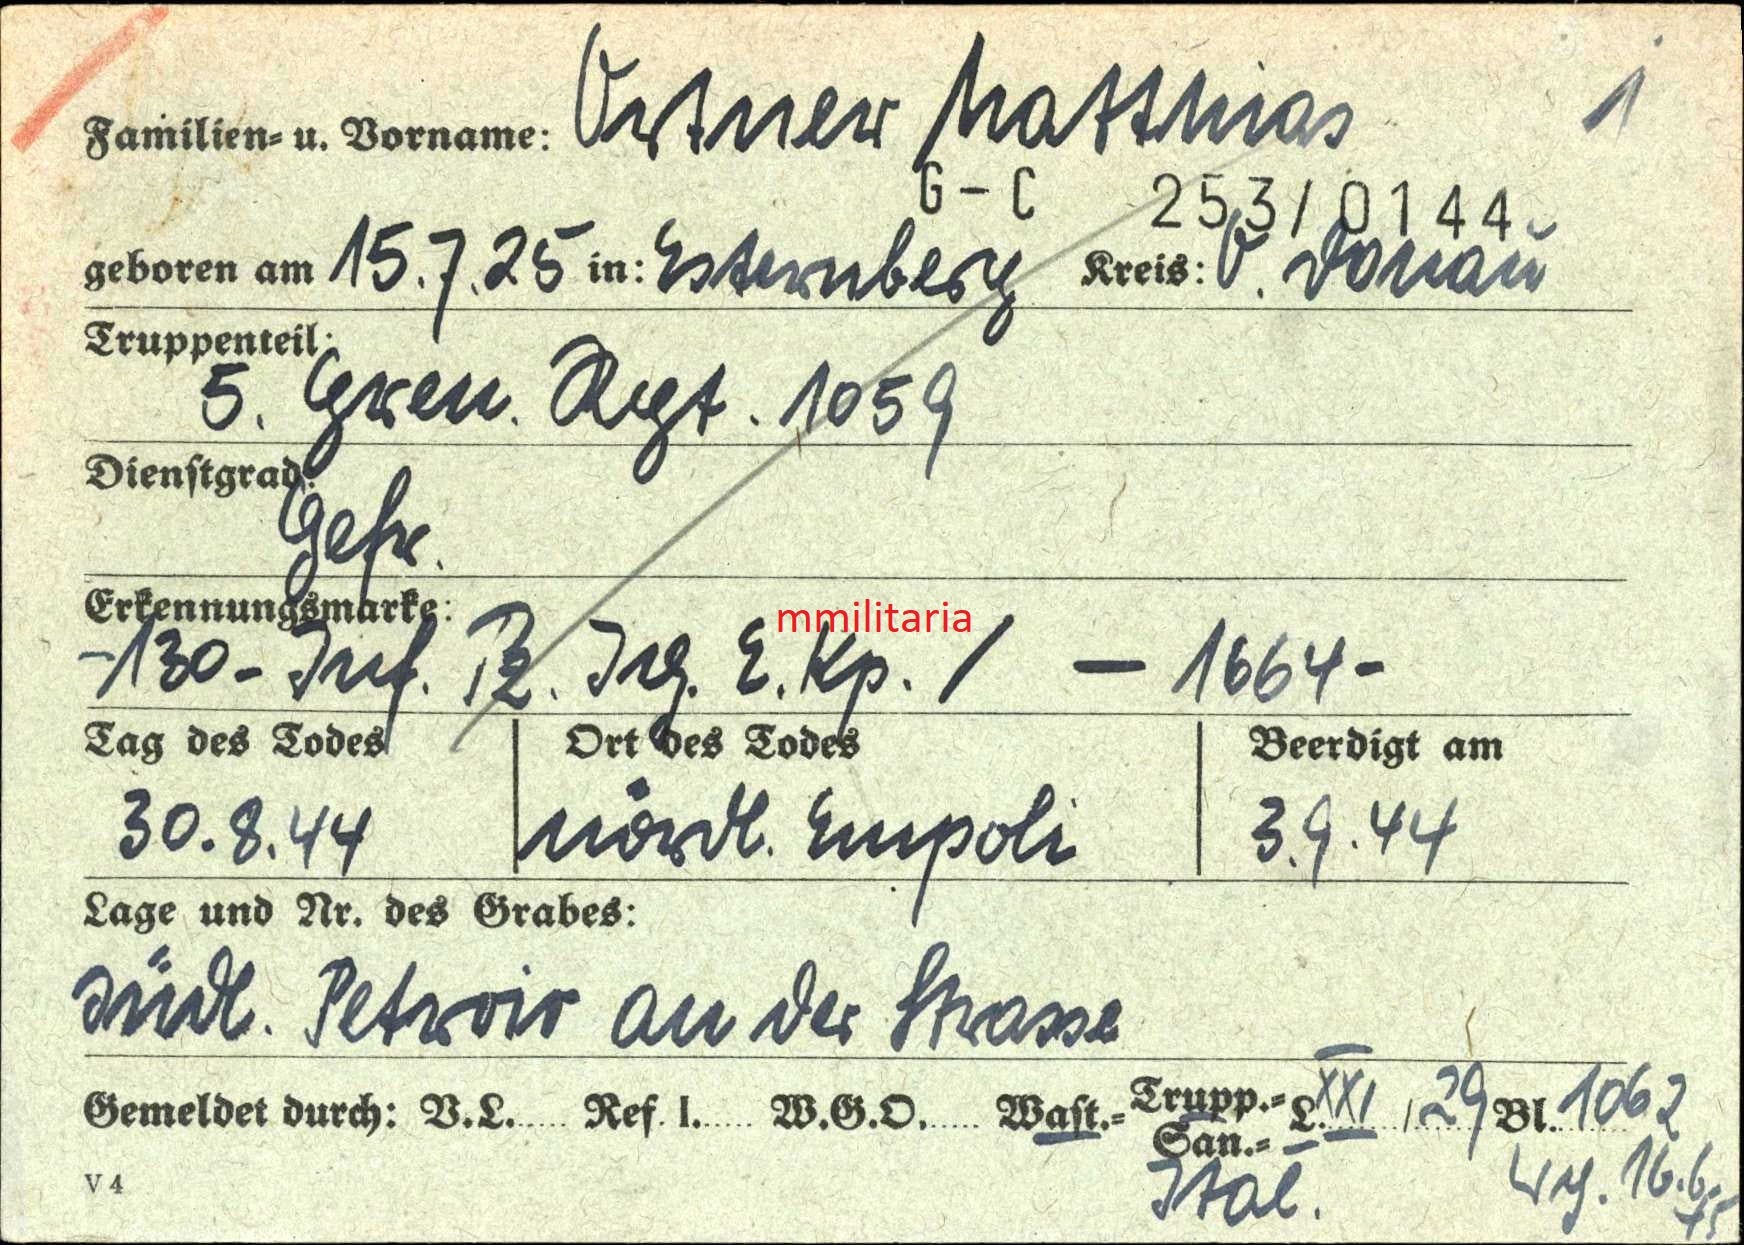 Familien- u. Vorname: Ortner Matthias 1
G - C 253/0144
geboren am 15.7.25 in: Esternberg Kreis: O. Donau
Truppenteil:
5. Gren. Regt. 1059
Dienstgrad:
Gefr.
Erkennungsmarke:
mmilitaria
-130- Inf. Pz. Jrg. E. Kp. / - 1664-
Tag des Todes Ort des Todes Beerdigt am
30.8.44 nördl. Empoli 3.9.44
Lage und Nr. des Grabes:
südl. Petroio an der Strasse
Gemeldet durch: V.L. Ref. I. W.G.O. Wast.- Trupp.- L. XXI / 29 Bl. 1062
San.-
Ital. 16.6.
V 4